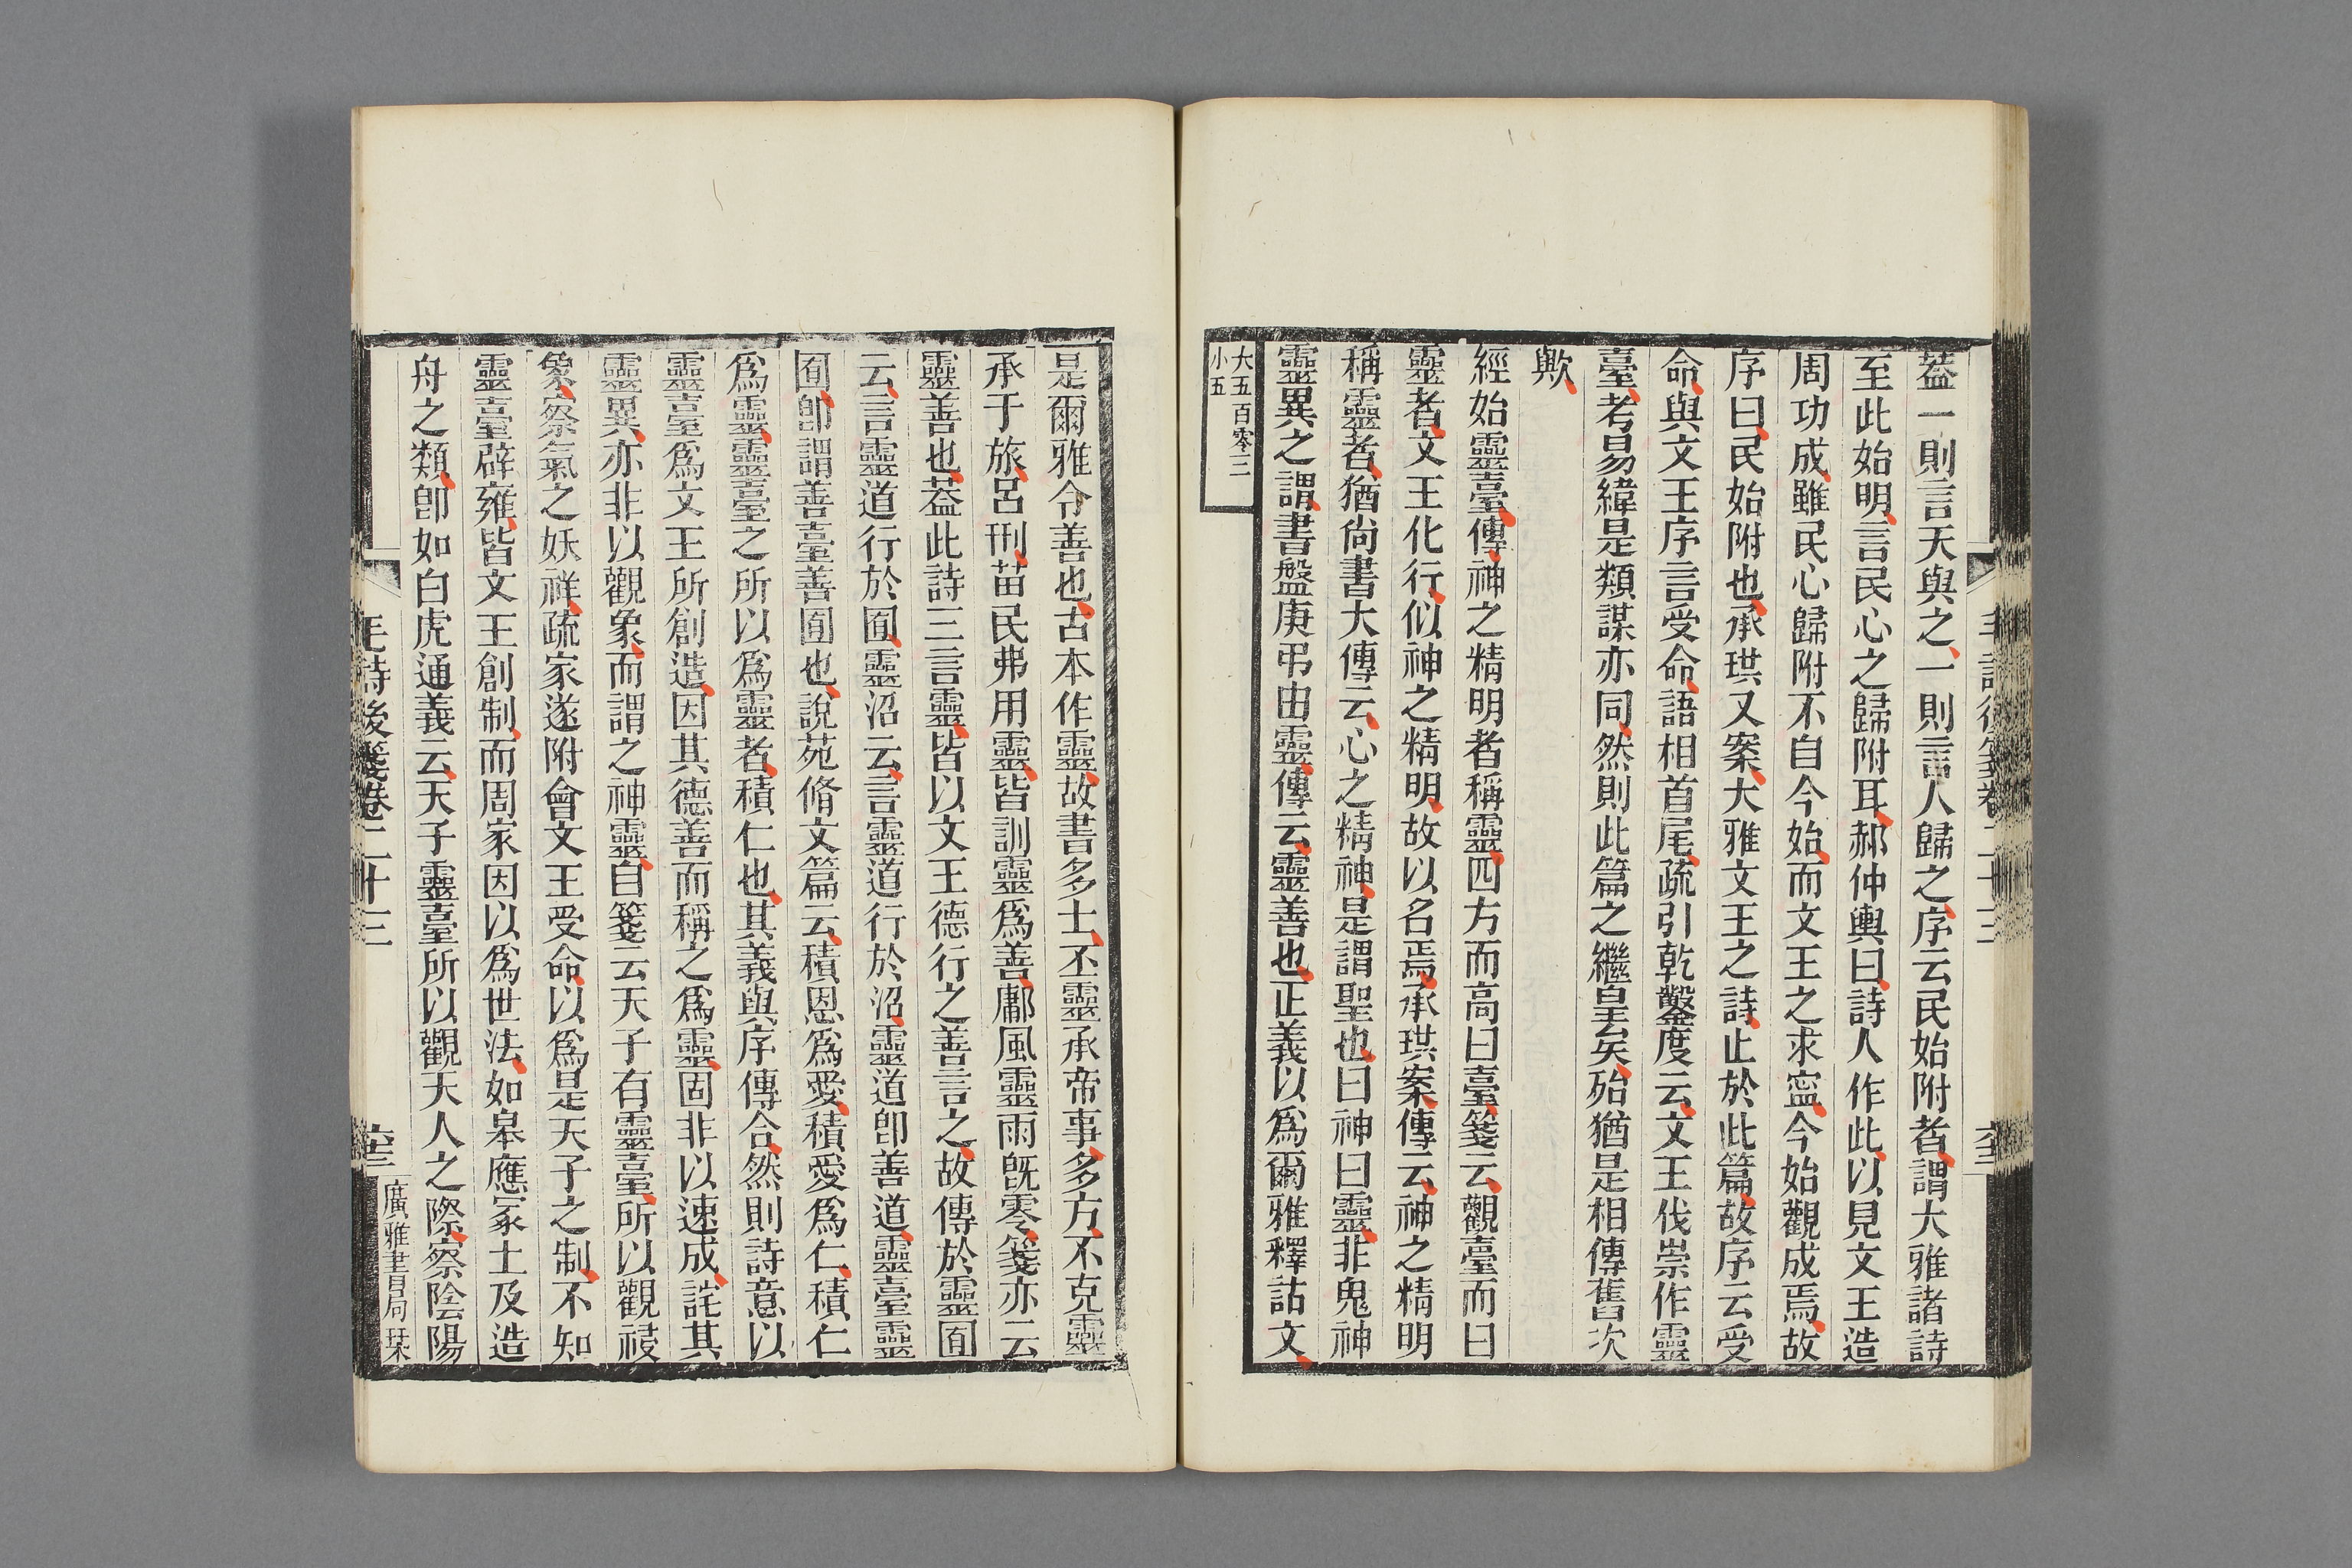 葢一則言天與之一則言人歸之序云民始附者謂大雅諸詩
至此始明言民心之歸附耳郝仲輿曰詩人作此以見文王造
周功成雖民心歸附不自今始而文王之求寍今始觀成焉故
序曰民始附也承珙又案大雅文王之詩止於此篇故序云受
命與文王序言受命語相首尾疏引乾鑿度云文王伐崇作靈
臺考易緯是類謀亦同然則此篇之繼皇矣殆猶是相傳舊次
歟
經始靈臺傳神之精明者稱靈四方而高曰臺箋云觀臺而曰
靈者文王化行似神之精明故以名焉承珙案傳云神之精明
稱靈者猶尙書大傳云心之精神是謂聖也曰神曰靈非鬼神
靈異之謂書盤庚弔由靈傳云靈善也正義以爲爾雅釋詁文
大五百零三
小五
是爾雅令善也古本作靈故書多士丕靈承帝事多方不克靈
承于旅呂刑苗民弗用靈皆訓靈爲善鄘風靈雨旣零箋亦云
靈善也葢此詩三言靈皆以文王德行之善言之故傳於靈囿
云言靈道行於囿靈沼云言靈道行於沼靈道卽善道靈臺靈
囿卽謂善臺善囿也說苑脩文篇云積恩爲愛積愛爲仁積仁
爲靈靈臺之所以爲靈者積仁也其義與序傳合然則詩意以
靈臺爲文王所創造因其德善而稱之爲靈固非以速成詫其
靈異亦非以觀象而謂之神靈自箋云天子有靈臺所以觀祲
象察氣之妖祥疏家遂附會文王受命以爲是天子之制不知
靈臺辟雍皆文王創制而周家因以爲世法如皋應冢土及造
舟之類卽如白虎通義云天子靈臺所以觀天人之際察陰陽
毛詩後箋卷二十三
六十三
廣雅書局栞